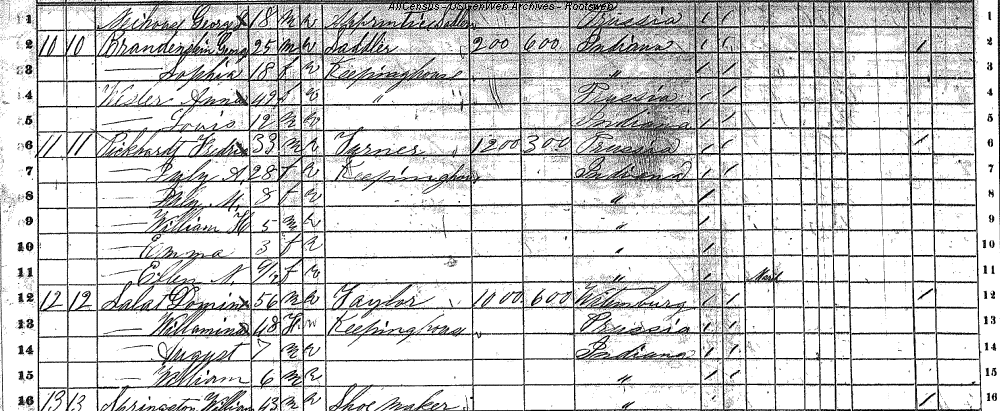 AHCensus - USGenWeb Archives - Rootsweb
1 George 18 m w Apprentice Prussia / / 1
2 10 10 Brandenstein Georg 25 m w Saddler 200 600 Indiana / / / 2
3 — Sophia 18 f w Keepinghouse " / / 3
4 Wisler Anna 49 f w " " Prussia / / 4
5 — Louis 12 m w Indiana / / 5
6 11 11 Pickhardt 33 m w Turner 1200 300 Prussia / / / 6
7 — 28 f w Keepinghouse Indiana / / 7
8 — M. 8 f w " / 8
9 — William H 5 m w " / 9
10 — Emma 3 f w " / 10
11 — Ellen N. 9/12 f w " / 11
12 12 12 Salat 56 m w Taylor 1000 600 Witemburg / / / 12
13 — Willamina 48 F. w Keepinghouse Prussia / / 13
14 — August 7 m w Indiana / / 14
15 — William 6 m w " / / 15
16 13 13 Springston William 43 m w Shoe maker " / 16